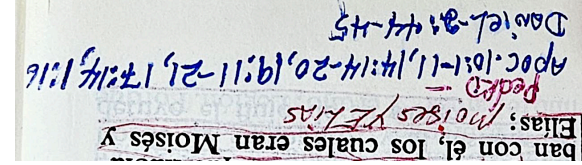 ban con él, los cuales eran Moisés y
Elías; MOISES Y ELIAS
Pedro =
Apoc. 10:1-11, 14:14-20, 19:11-21, 17:14, 1:16
Daniel 2:44-45